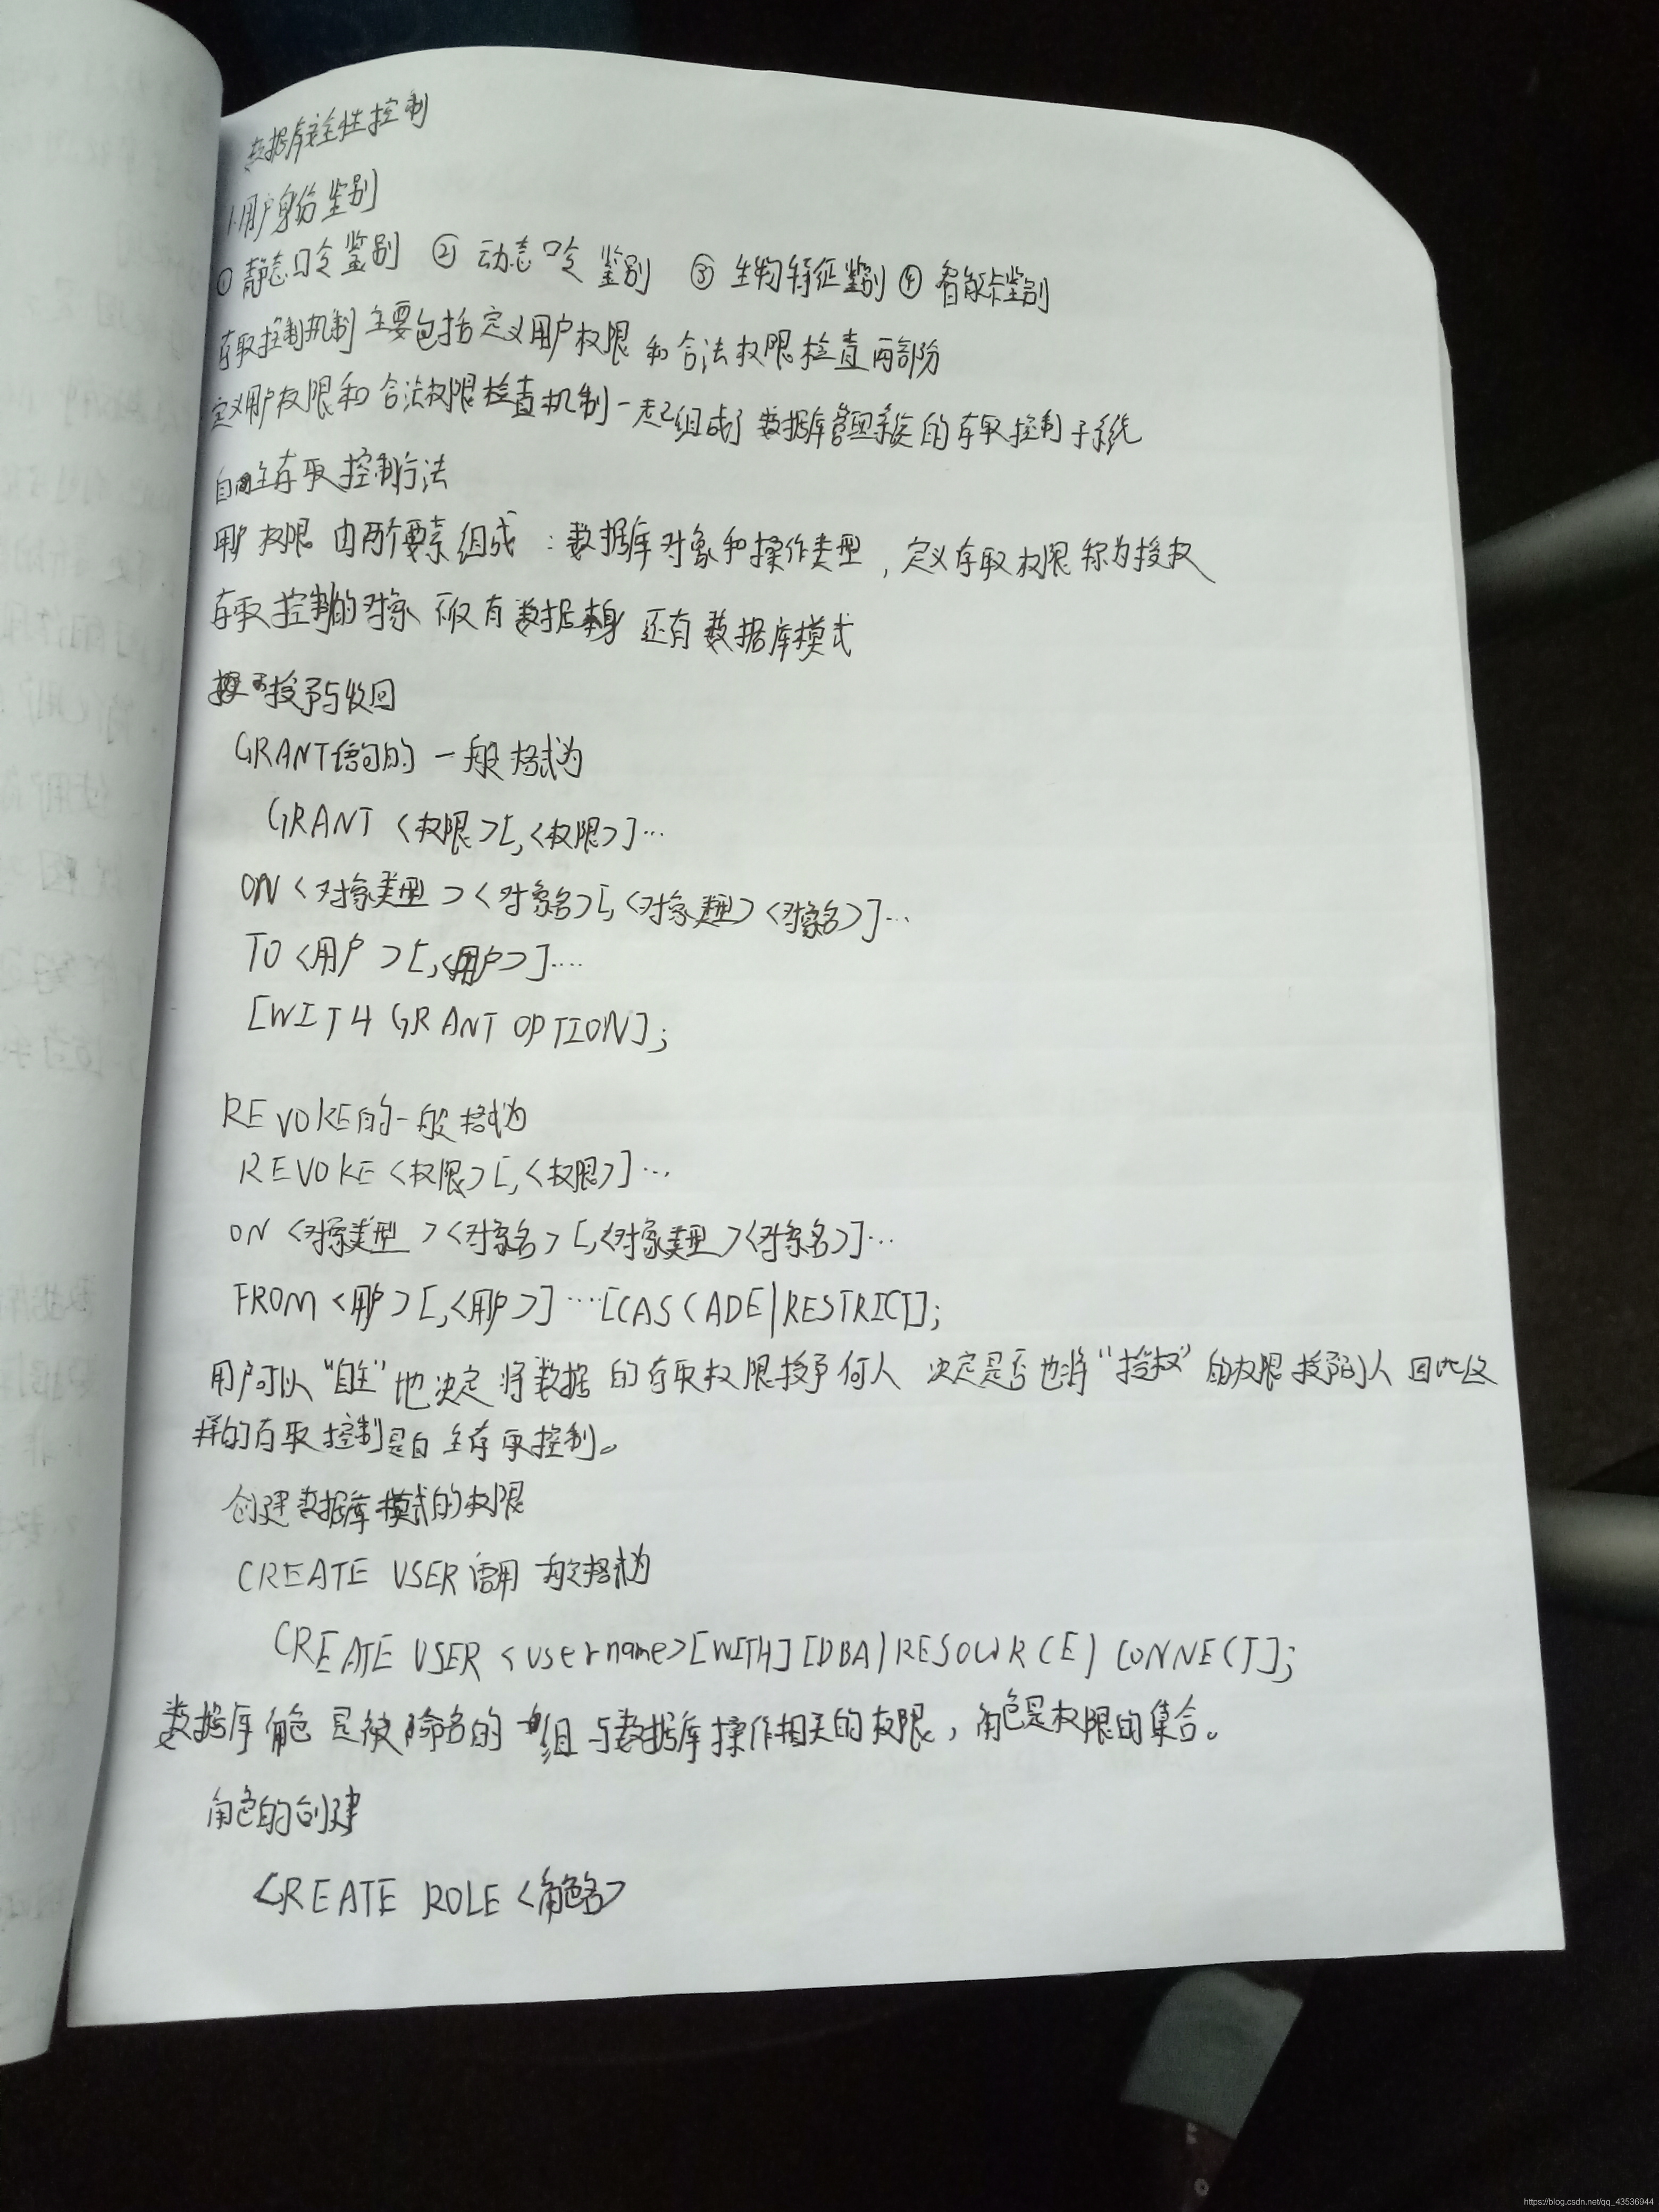 数据库安全性控制
1.用户身份鉴别
① 静态口令鉴别 ② 动态口令鉴别 ③ 生物特征鉴别 ④ 智能卡鉴别
存取控制机制主要包括定义用户权限和合法权限检查两部份
定义用户权限和合法权限检查机制一起组成了数据库管理系统的存取控制子系统
自主存取控制方法
用户权限由两个要素组成：数据库对象和操作类型，定义存取权限称为授权
存取控制的对象不仅有数据本身还有数据库模式
授予与收回
GRANT语句的一般格式为
GRANT <权限>[,<权限>]…
ON <对象类型><对象名>[,<对象类型><对象名>]…
TO <用户>[,<用户>]…
[WITH GRANT OPTION];
REVOKE的一般格式为
REVOKE <权限>[,<权限>]…
ON <对象类型><对象名>[,<对象类型><对象名>]…
FROM <用户>[,<用户>]…[CASCADE|RESTRICT];
用户可以“自主”地决定将数据的存取权限授予何人 决定是否也将“授权”的权限授予别人 因此这
样的存取控制是自主存取控制。
创建数据库模式的权限
CREATE USER 语句 格式为
CREATE USER <username>[WITH][DBA|RESOURCE|CONNECT];
数据库角色是被命名的一组与数据库操作相关的权限，角色是权限的集合。
角色的创建
CREATE ROLE <角色名>
https://blog.csdn.net/qq_43536944